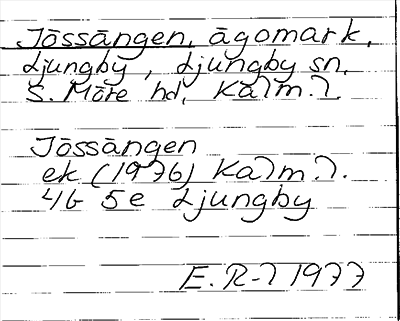 Jössängen, ägomark,
Ljungby, Ljungby sn,
S. Möre hd, Kalm. l.
Jössängen
ek (1976) Kalm. l.
4G 5e Ljungby
E. R-l 1977